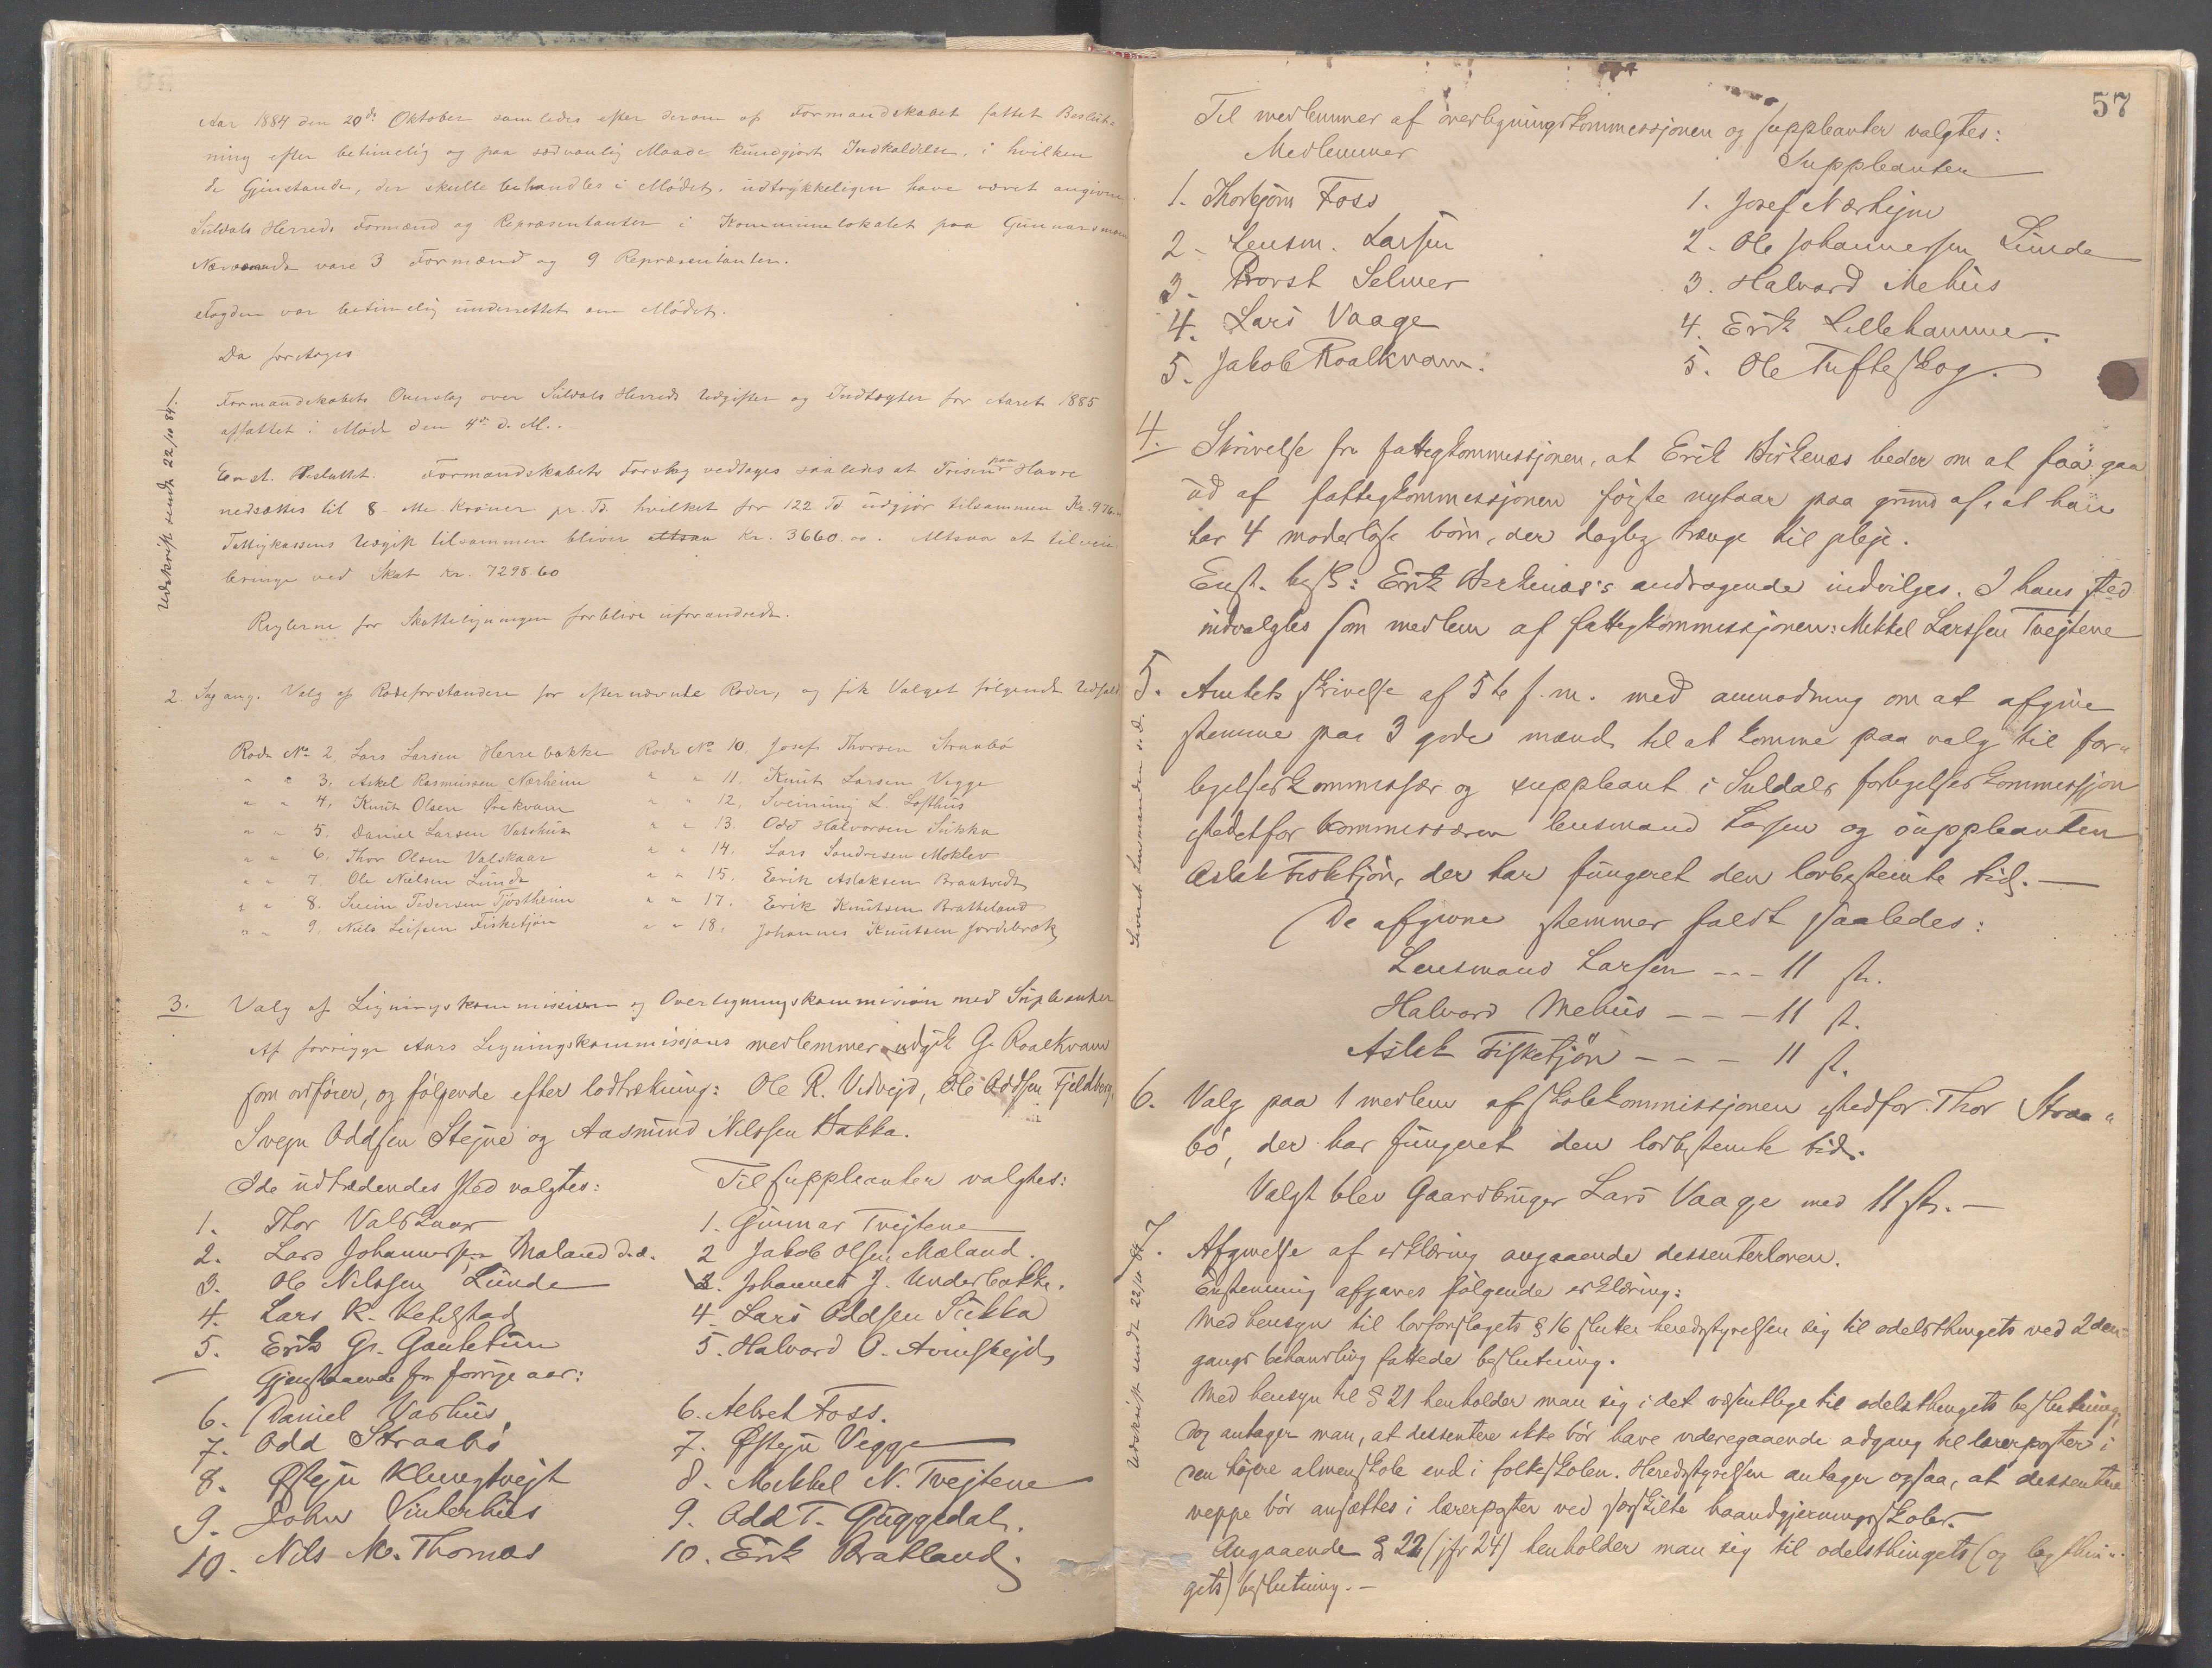 Aar 1884 den 20de Oktober samledes efter derom af Formandskabet fattet Beslut-
ning efter betimelig og paa sædvanlig Maade kundgjort Indkaldelse, i hvilken
de Gjenstande, der skulle behandles i Mødet, udtrykkeligen have været angivne
Suldals Herreds Formænd og Repræsentanter i Kommunelokalet paa Gunnarsmoen
Nærværende vare 3 Formænd og 9 Repræsentanter.
Fogden var betimelig underrettet om Mødet.
Da foretoges
1.
Formandskabets Overslag over Suldals Herreds Udgifter og Indtægter for Aaret 1885
affattet i Møde den 4de d. M..
Enst. Besluttet. Formandskabets Forslag vedtages saaledes at Prisen paa Havre
nedsættes til 8 - otte Kroner pr. Td. hvilket for 122 Td. udgjør tilsammen Kr. 976.
Fattigkassens Udgift tilsammen bliver altsaa Kr. 3660.00. Altsaa at tilveie-
bringe ved Skat Kr. 7298.60
Reglerne for Skatteligningen forblive uforandrede.
Udskrift sendt 22/10 84.
2. Sag ang. Valg af Rodeforstandere for efternævnte Roder, og fik Valget følgende Udfald
Rode No 2, Lars Larsen Herrebakke Rode No 10, Josef Thorsen Straabø
" " 3, Askel Rasmussen Nærheim " " 11. Knut Larsen Vegge
" " 4, Knut Olsen Ørekvam " " 12, Sveinung L. Lofthus
" " 5. Daniel Larsen Vatshus " " 13. Odd Halvorsen Sukka
" " 6. Thor Olsen Valskaar " " 14. Lars Sondresen Moklev
" " 7. Ole Nielsen Lunde " " 15. Eerik Aslaksen Brautvedt
" " 8. Svein Pedersen Tjøstheim " " 17. Erik Knutsen Bratteland
" " 9. Niels Leifsen Fisketjøn " " 18. Johannes Knutsen Jordebræk
3. Valg af Ligningskommission og Overligningskommision med Supleanter
Af forrigge Aars Ligningskommissjons medlemmer udgik G. Roalkvam
som ordfører, og følgende efter lodtrækning: Ole R. Vedvejd, Ole Oddsen Fjeldberg,
Svejn Oddsen Stejne og Aasmund Nilssen Bakka.
I de udtrædendes sted valgtes: Til suppleanter valgtes:
1. Thor Valskaar 1. Gunnar Tvejtene
2. Lars Johannessen Mæland d.æ. 2 Jakob Olsen Mæland.
3. Ole Nilssen Lunde 3. Johannes J. Underbakke.
4. Lars K. Ketilstad 4. Lars Oddsen Sukka
5. Erik Gr. Gautetun 5. Halvard O. Avinskejd
Gjenstaaende fra forrige aar:
6. Daniel Vashus 6. Albret Foss.
7. Odd Straabø 7. Østejn Vegge
8. Østejn Klungtvejt 8. Mikkel N. Tvejtene
9. John Vinterhus 9. Odd T. Guggedal.
10. Nils M. Thomas 10. Erik Bratland.
57
Til medlemmer af overligningskommissjonen og suppleanter valgtes:
Medlemmer Suppleanter
1. Thorbjørn Foss 1. Josef Nærhejm
2. Lensm. Larsen 2. Ole Johannessen Lunde
3. Provst Selmer 3. Halvard Mehus
4. Lars Vaage 4. Erik Lillehammer.
5. Jakob Roalkvam. 5. Ole Tufteskog.
4. Skrivelse fra fattigkommissjonen, at Erik Birkenæs beder om at faa gaa
ud af fattigkommissjonen første nytaar paa grund af, at han
har 4 moderløse børn, der daglig trænge til pleje.
Enst. besl.: Erik Birkenæs's andragende indvilges. I hans sted
indvalgtes som medlem af fattigkommissjonen: Mikkel Larssen Tvejtene
5. Amtets skrivelse af 5te f. m. med anmodning om at afgive
stemme paa 3 gode mænd til at komme paa valg til for-
ligelseskommissær og suppleant i Suldals forligelseskommissjon
istedetfor kommissæren lensmand Larsen og suppleanten
Aslak Fisketjøn, der har fungeret den lovbestemte tid.
De afgivne stemmer faldt saaledes:
Lensmand Larsen --- 11 st.
Halvard Mehus --- 11 st.
Aslak Fisketjøn --- 11 st.
6. Valg paa 1 medlem af skolekommissjonen istedfor Thor Straa-
bø, der har fungeret den lovbestemte tid.
Valgt blev Gaardbruger Lars Vaage med 11 st. -
7. Afgivelse af erklæring angaaende dessenterloven.
Enstemmig afgaves følgende erklæring:
Med hensyn til lovforslagets § 16 slutter heredsstyrelsen sig til odelsthingets ved 2den
gangs behandling fattede beslutning.
Med hensyn til § 21 henholder man sig i det væsentlige til odelsthingets beslutning,
dog antager man, at dessentere ikke bør have videregaaende adgang til lærerposter i
den højere almenskole end i folkeskolen. Heredsstyrelsen antager ogsaa, at dessentere
neppe bør ansættes i lærerposter ved særskilte haandgjerningsskoler.
Angaaende § 22 (jfr 24) henholder man sig til odelsthingets (og lagthin-
gets) beslutning. -
Udskrift sendt 22/10 84